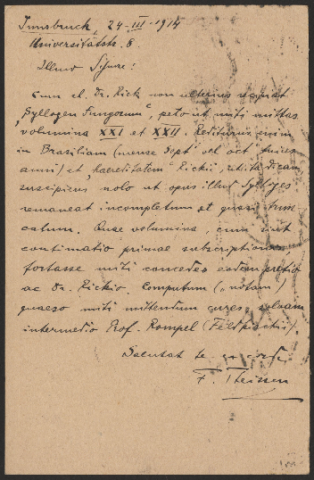 Innsbruck, 24-III-1914
Universitätstr. 8
Illmo Signore:
Cum el. Dr. Rick non ulterius
"Syllogen Fungorum", peto ut mihi mittas
volumina XXI et XXII. Rediturus enim
in Brasiliam (mense Sept vel oct huius
anni) et "haereditatem" Rickii, ut ita dicam
suscipiens nolo ut opus illud Sylloges
remaneat incompletum et quasi trun-
catum. Quae volumina, cum sint
continuatio primae subscriptionis
fortasse mihi concedes eodem pretio
ac Dr. Rickio. Computum ("notam")
quaeso mihi mittendum cures, solvam
intermedio Prof. Rompel (Feldkirch).
Salutat te
F. Theissen